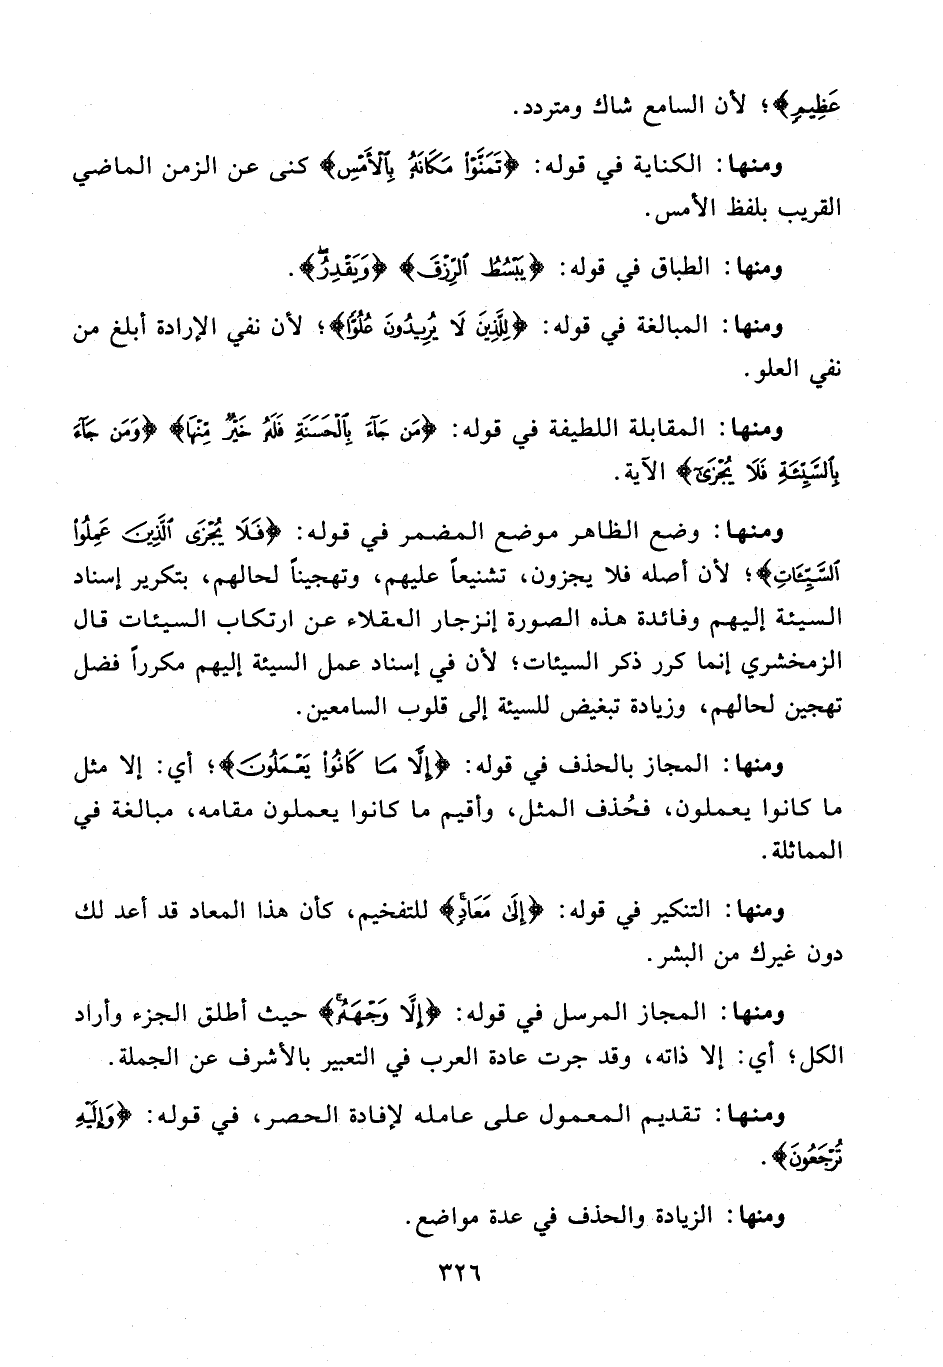 عَظِيمٍ﴾؛ لأن السامع شاك ومتردد.
ومنها: الكناية في قوله: ﴿تَمَنَّوْا۟ مَكَانَهُۥ بِٱلْأَمْسِ﴾ كنى عن الزمن الماضي
القريب بلفظ الأمس.
ومنها: الطباق في قوله: ﴿يَبْسُطُ ٱلرِّزْقَ﴾ ﴿وَيَقْدِرُ ۖ﴾.
ومنها: المبالغة في قوله: ﴿لِلَّذِينَ لَا يُرِيدُونَ عُلُوًّا﴾؛ لأن نفي الإرادة أبلغ من
نفي العلو.
ومنها: المقابلة اللطيفة في قوله: ﴿مَن جَآءَ بِٱلْحَسَنَةِ فَلَهُۥ خَيْرٌ مِّنْهَا﴾ ﴿وَمَن جَآءَ
بِٱلسَّيِّئَةِ فَلَا يُجْزَىٰٓ﴾ الآية.
ومنها: وضع الظاهر موضع المضمر في قوله: ﴿فَلَا يُجْزَى ٱلَّذِينَ عَمِلُوا۟
ٱلسَّيِّـَٔاتِ﴾؛ لأن أصله فلا يجزون، تشنيعاً عليهم، وتهجيناً لحالهم، بتكرير إسناد
السيئة إليهم وفائدة هذه الصورة إنزجار العقلاء عن ارتكاب السيئات قال
الزمخشري إنما كرر ذكر السيئات؛ لأن في إسناد عمل السيئة إليهم مكرراً فضل
تهجين لحالهم، وزيادة تبغيض للسيئة إلى قلوب السامعين.
ومنها: المجاز بالحذف في قوله: ﴿إِلَّا مَا كَانُوا۟ يَعْمَلُونَ﴾؛ أي: إلا مثل
ما كانوا يعملون، فحُذف المثل، وأقيم ما كانوا يعملون مقامه، مبالغة في
المماثلة.
ومنها: التنكير في قوله: ﴿إِلَىٰ مَعَادٍ ۚ﴾ للتفخيم، كأن هذا المعاد قد أعد لك
دون غيرك من البشر.
ومنها: المجاز المرسل في قوله: ﴿إِلَّا وَجْهَهُۥ ۚ﴾ حيث أطلق الجزء وأراد
الكل؛ أي: إلا ذاته، وقد جرت عادة العرب في التعبير بالأشرف عن الجملة.
ومنها: تقديم المعمول على عامله لإفادة الحصر، في قوله: ﴿وَإِلَيْهِ
تُرْجَعُونَ﴾.
ومنها: الزيادة والحذف في عدة مواضع.
٣٢٦